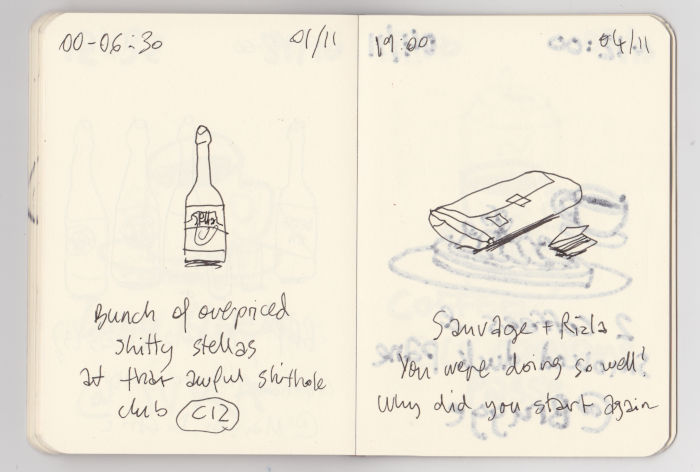 00-06:30
01/11
Stella
Bunch of overpriced
shitty stellas
at that awful shithole
club C12
19:00
04/11
Sauvage + Rizla
You were doing so well!
Why did you start again